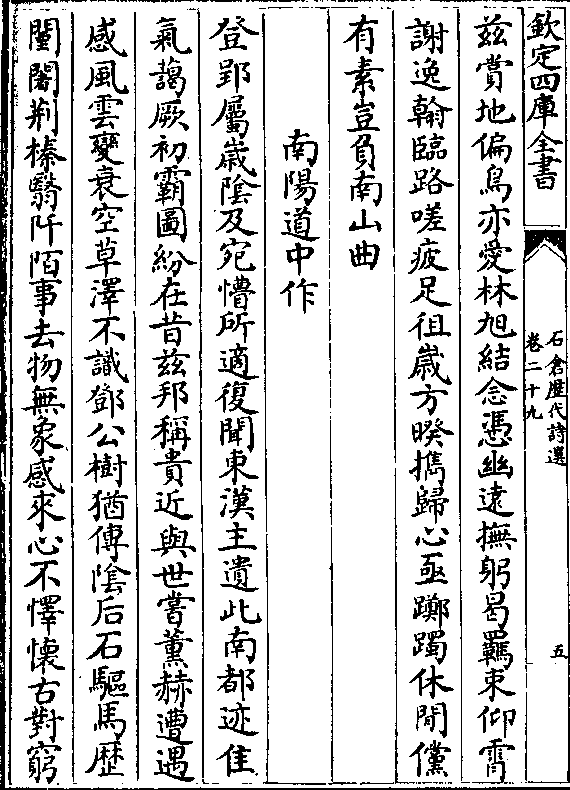 欽定四庫全書
石倉歴代詩選
卷二十九
五
兹賞地偏鳥亦愛林旭結念憑幽遠撫躬曷羈束仰霄
謝逸翰臨路嗟疲足徂嵗方暌擕歸心亟躑躅休閒儻
有素豈負南山曲
南陽道中作
登郢屬嵗隂及宛懵所適復聞東漢主遺此南都迹佳
氣藹厥初霸圖紛在昔兹邦稱貴近與世嘗薰赫遭遇
感風雲變衰空草澤不識鄧公樹猶傳隂后石驅馬歴
闉闍荆榛翳阡陌事去物無象感來心不懌懷古對窮